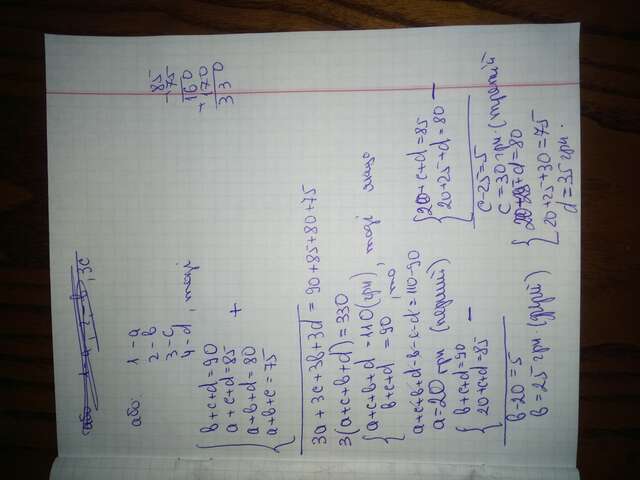 85
+75
160
+170
330
або 1 - a
2 - b
3 - c
4 - d, тоді
b+c+d=90
a+c+d=85
a+b+d=80
a+b+c=75
+
3a+3c+3b+3d=90+85+80+75
3(a+c+b+d)=330
a+c+b+d=110(грн), тоді якщо
b+c+d=90, то
a+c+b+d-b-c-d=110-90
a=20 грн (перший)
b+c+d=90
20+c+d=85
-
b-20=5
b=25 грн (другий)
20+c+d=85
20+25+d=80
-
c-25=5
c=30 грн. (третій)
20+25+d=80
20+25+30=75
d=35 грн.